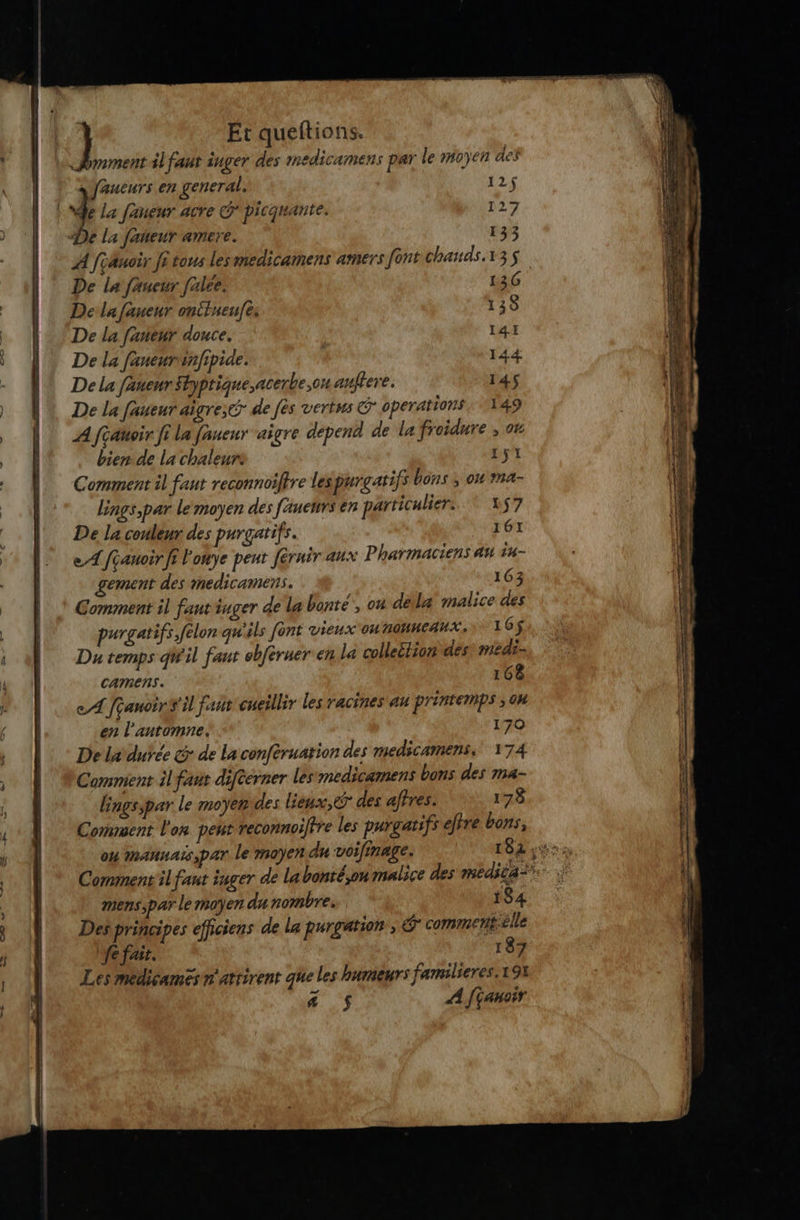 Et queſtions.
mment il faut iuger des medicamens par le moyen des
ſaueurs en general. 125
la ſaueur acre & picquante. 127
De la ſaueur amere. 133
A ſçauoir ſi tous les medicamens amers ſont chauds. 135
De la ſaueur ſalée. 136
De la ſaueur onctueuſe. 138
De la ſaueur douce. 141
De la ſaueur inſipide. 144
De la ſaueur ſtyptique, acerbe, ou auſtere. 145
De la ſaueur aigre, & de ſes vertus & operations. 149
A ſçauoir ſi la ſaueur aigre depend de la froidure, ou
bien de la chaleur. 151
Comment il faut reconnoiſtre les purgatifs bons, ou ma-
lings, par le moyen des ſaueurs en particulier. 157
De la couleur des purgatifs. 161
A ſçauoir ſi l'ouye peut ſeruir aux Pharmaciens au iu-
gement des medicamens. 163
Comment il faut iuger de la bonté, ou de la malice des
purgatifs, ſelon qu'ils ſont vieux ou nouueaux. 165
Du temps qu'il faut obſeruer en la collection des medi-
camens. 168
A ſçauoir s'il faut cueillir les racines au printemps, ou
en l'automne. 170
De la durée & de la conſeruation des medicamens. 174
Comment il faut diſcerner les medicamens bons des ma-
lings, par le moyen des lieux, & des aſtres. 178
Comment l'on peut reconnoiſtre les purgatifs eſtre bons,
ou mauuais, par le moyen du voiſinage. 182
Comment il faut iuger de la bonté, ou malice des medica-
mens, par le moyen du nombre. 184
Des principes efficiens de la purgation, & comment elle
ſe fait. 187
Les medicamẽs n'attirent que les humeurs familieres. 191
ã 5 A ſçauoir